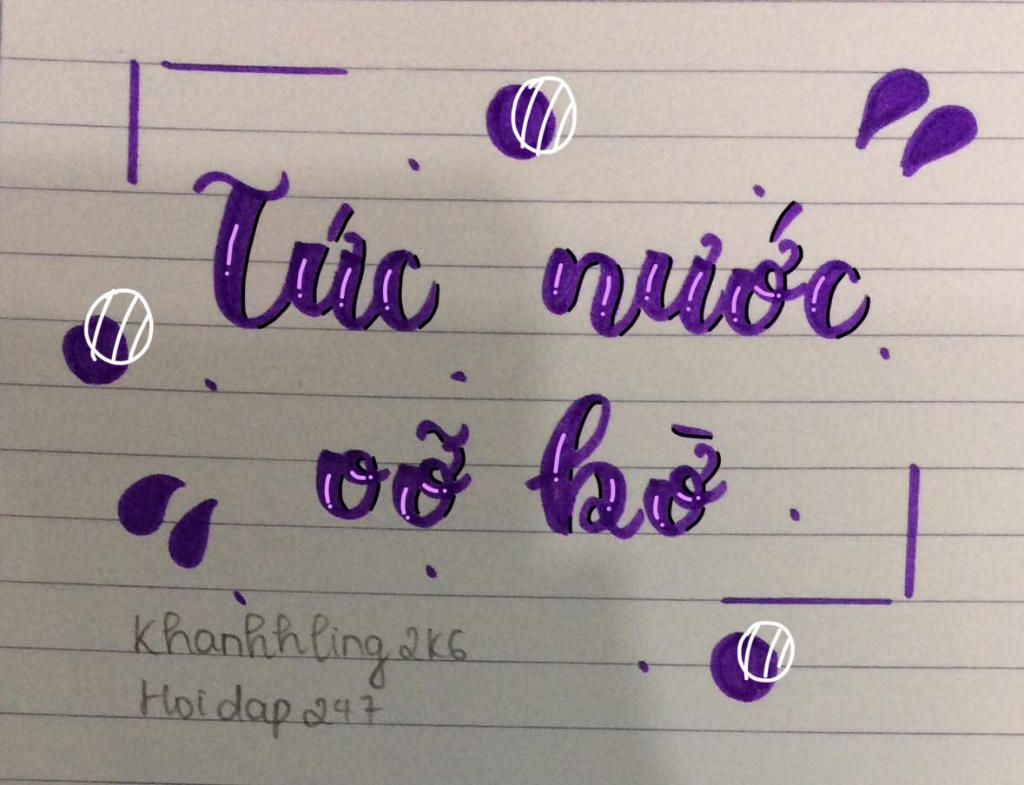 Tức nước
vỡ bờ
Khanhhling 2k6
Hoidap 247